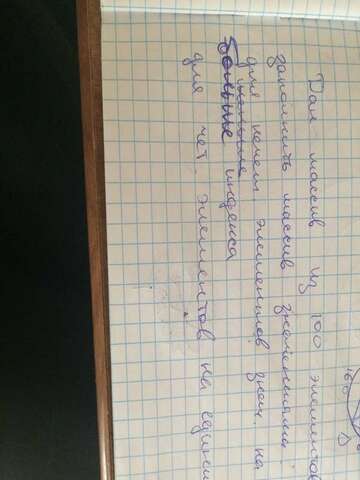 Дан массив из 100 элементов
заполнить массив значениями
для нечет. элементов знач. на
больше индекса
для чет. элементов на единиц
160